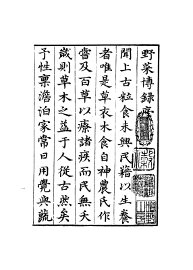 野菜博錄序
聞上古粒食未興民藉以生養
者唯是草衣木食自神農氏作
嘗及百草以療諸疾而民無夭
歲則草木之益于人從古然矣
予性稟澹泊家常日用覺與蔬